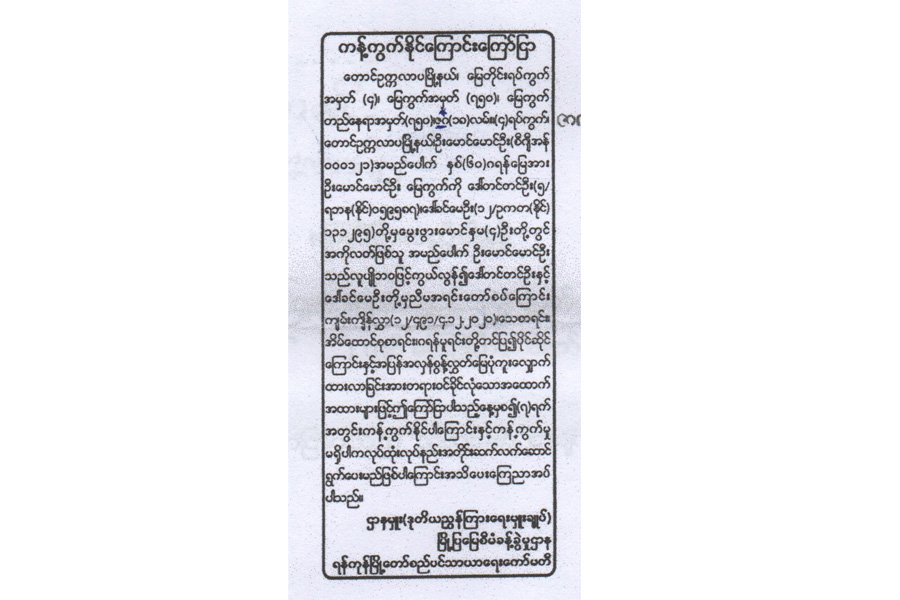 ကန့်ကွက်နိုင်ကြောင်းကြော်ငြာ
တောင်ဥက္ကလာပမြို့နယ်၊ မြေတိုင်းရပ်ကွက်
အမှတ် (၄)၊ မြေကွက်အမှတ် (၇၅၀)၊ မြေကွက်
တည်နေရာအမှတ်(၇၅၀)၊ဇွဂ်(၁၈)လမ်း၊(၄)ရပ်ကွက်၊
တောင်ဥက္ကလာပမြို့နယ်ဦးမောင်မောင်ဦး(စီဂျီအန်
၀၀၀၁၂၁)အမည်ပေါက် နှစ်(၆၀)ဂရန်မြေအား
ဦးမောင်မောင်ဦး မြေကွက်ကို ဒေါ်တင်တင်ဦး(၅/
ရဘန(နိုင်)၀၅၉၅၈၇)၊ဒေါ်ခင်မေဦး(၁၂/ဥကတ(နိုင်)
၁၃၁၂၉၅)တို့မှမွေးဖွားမောင်နှမ(၄)ဦးတို့တွင်
အကိုလတ်ဖြစ်သူ အမည်ပေါက် ဦးမောင်မောင်ဦး
သည်လူပျိုဘဝဖြင့်ကွယ်လွန်၍ဒေါ်တင်တင်ဦးနှင့်
ဒေါ်ခင်မေဦးတို့မှညီမအရင်းတော်စပ်ကြောင်း
ကျမ်းကျိန်လွှာ(၁၂/၄၉၁/၄.၁၂.၂၀၂၀)၊သေစာရင်း၊
အိမ်ထောင်စုစာရင်း၊ဂရန်မူရင်းတို့တင်ပြ၍ပိုင်ဆိုင်
ကြောင်းနှင့်အပြန်အလှန်စွန့်လွှတ်မြေပုံကူးလျှောက်
ထားလာခြင်းအားတရားဝင်ခိုင်လုံသောအထောက်
အထားများဖြင့်ဤကြော်ငြာပါသည့်နေ့မှစ၍(၇)ရက်
အတွင်းကန့်ကွက်နိုင်ပါကြောင်းနှင့်ကန့်ကွက်မှု
မရှိပါကလုပ်ထုံးလုပ်နည်းအတိုင်းဆက်လက်ဆောင်
ရွက်ပေးမည်ဖြစ်ပါကြောင်းအသိပေးကြေညာအပ်
ပါသည်။
ဌာနမှူး(ဒုတိယညွှန်ကြားရေးမှူးချုပ်)
မြို့ပြမြေစီမံခန့်ခွဲမှုဌာန
ရန်ကုန်မြို့တော်စည်ပင်သာယာရေးကော်မတီ